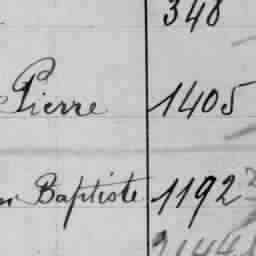 348
Pierre 1405
Baptiste 1192